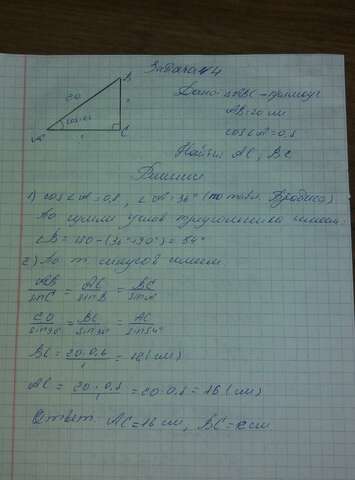 Задача №4
Дано: △ABC - прямоуг
AB = 20 см
cos∠A = 0,8
Найти: AC, BC
B
20
cos=0,8
C
Решение
1) cos∠A = 0,8, ∠A = 36° (по табл. Брадиса)
По сумме углов треугольника имеем:
∠B = 180 - (36° + 90°) = 54°
2) По т. синусов имеем
AB/sin C = AC/sin B = BC/sin A
20/sin 90° = BC/sin 36° = AC/sin 54°
BC = 20 · 0,6 / 1 = 12 (см)
AC = 20 · 0,8 / 1 = 20 · 0,8 = 16 (см)
Ответ: AC = 16 см, BC = 12 см